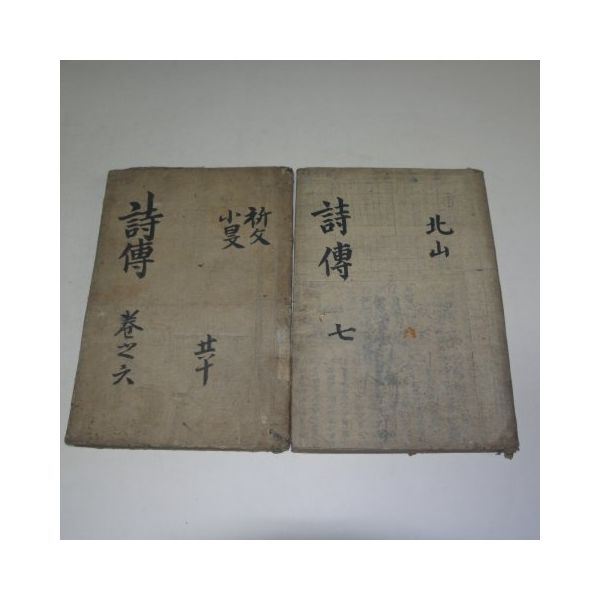 祈父
小旻
詩傳
卷之六
北山
詩傳
七